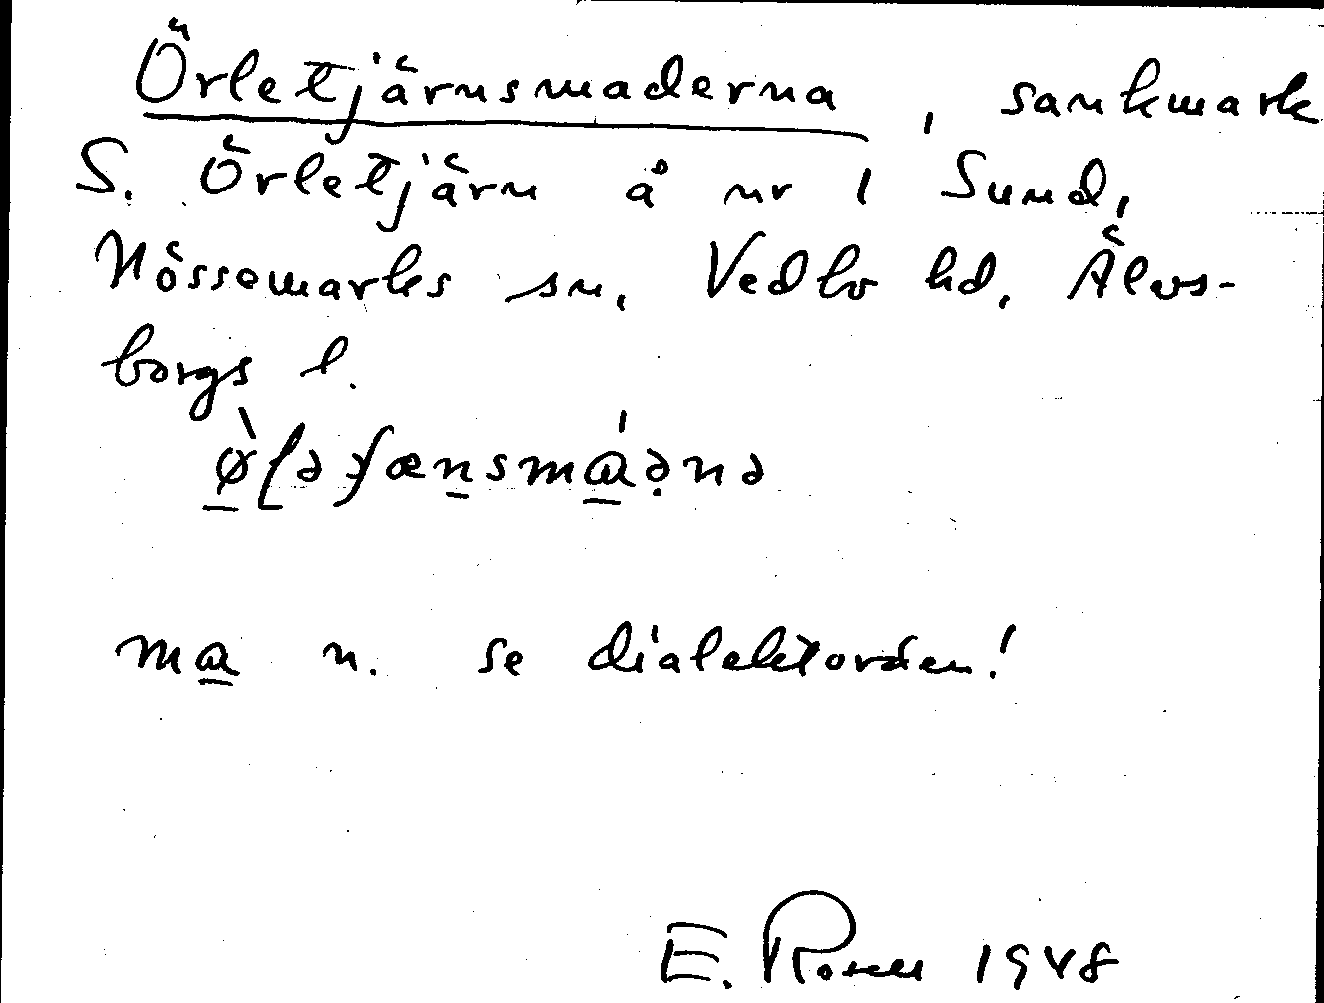 Örletjärnsmaderna, sankmark
S. Örletjärn å nr 1 Sund,
Nössemarks sn, Vedbo hd, Älvs-
borgs l.
ma n. se dialektorden!
E. Rosell 1948